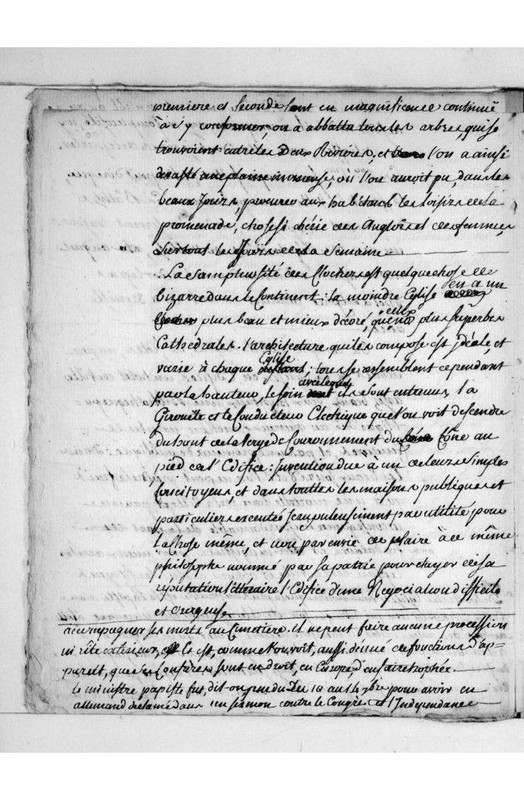 premiere et seconde sont en magnificence continué
à s'y conformer, on a abbattu tous les arbres, qui se
trouvoient entre les Deux Rivieres, et l'on a ainsi
une plaine immense, où l'on auroit pu, dans les
beaux jours, procurer aux habitants les loisirs de la
promenade, chose si chérie des Anglois et des femmes,
surtout les jours de la semaine
La Somptuosité des Clochers est quelque chose de
bizarre dans le Continent : la moindre Eglise en a un
plus beau et mieux décoré, que nos plus superbes
Cathédrales. l'architecture qui les compose est idéale, et
varie à chaque Eglise ; tous se ressemblent cependant
par la hauteur, le soin avec lequel ils sont entretenus, la
Girouette et le Conducteur Electrique que l'on voit descendre
du haut de la verge de Couronnement du Cône au
pied de l'Edifice : invention due à un de leurs simples
Concitoyens, et dans toutes les maisons publiques et
particulieres par utilité pour
la Chose même, et par envie de plaire à ce même
philosophe nommé par sa patrie pour étayer de sa
réputation littéraire l'Edifice d'une Négociation difficile
et
accompagner ses morts au Cimetiere. il ne peut faire aucune procession
ni rite extérieur, il est, comme on voit, aussi dénué de fonctions d'ap-
pareil, que ses Confreres sont en droit, en Europe d'en faire trophée.
le ministre papiste fut, dit-on pendu Du 18 au pour avoir en
allemand déclamé dans un sermon contre le Congrès et l'Independance